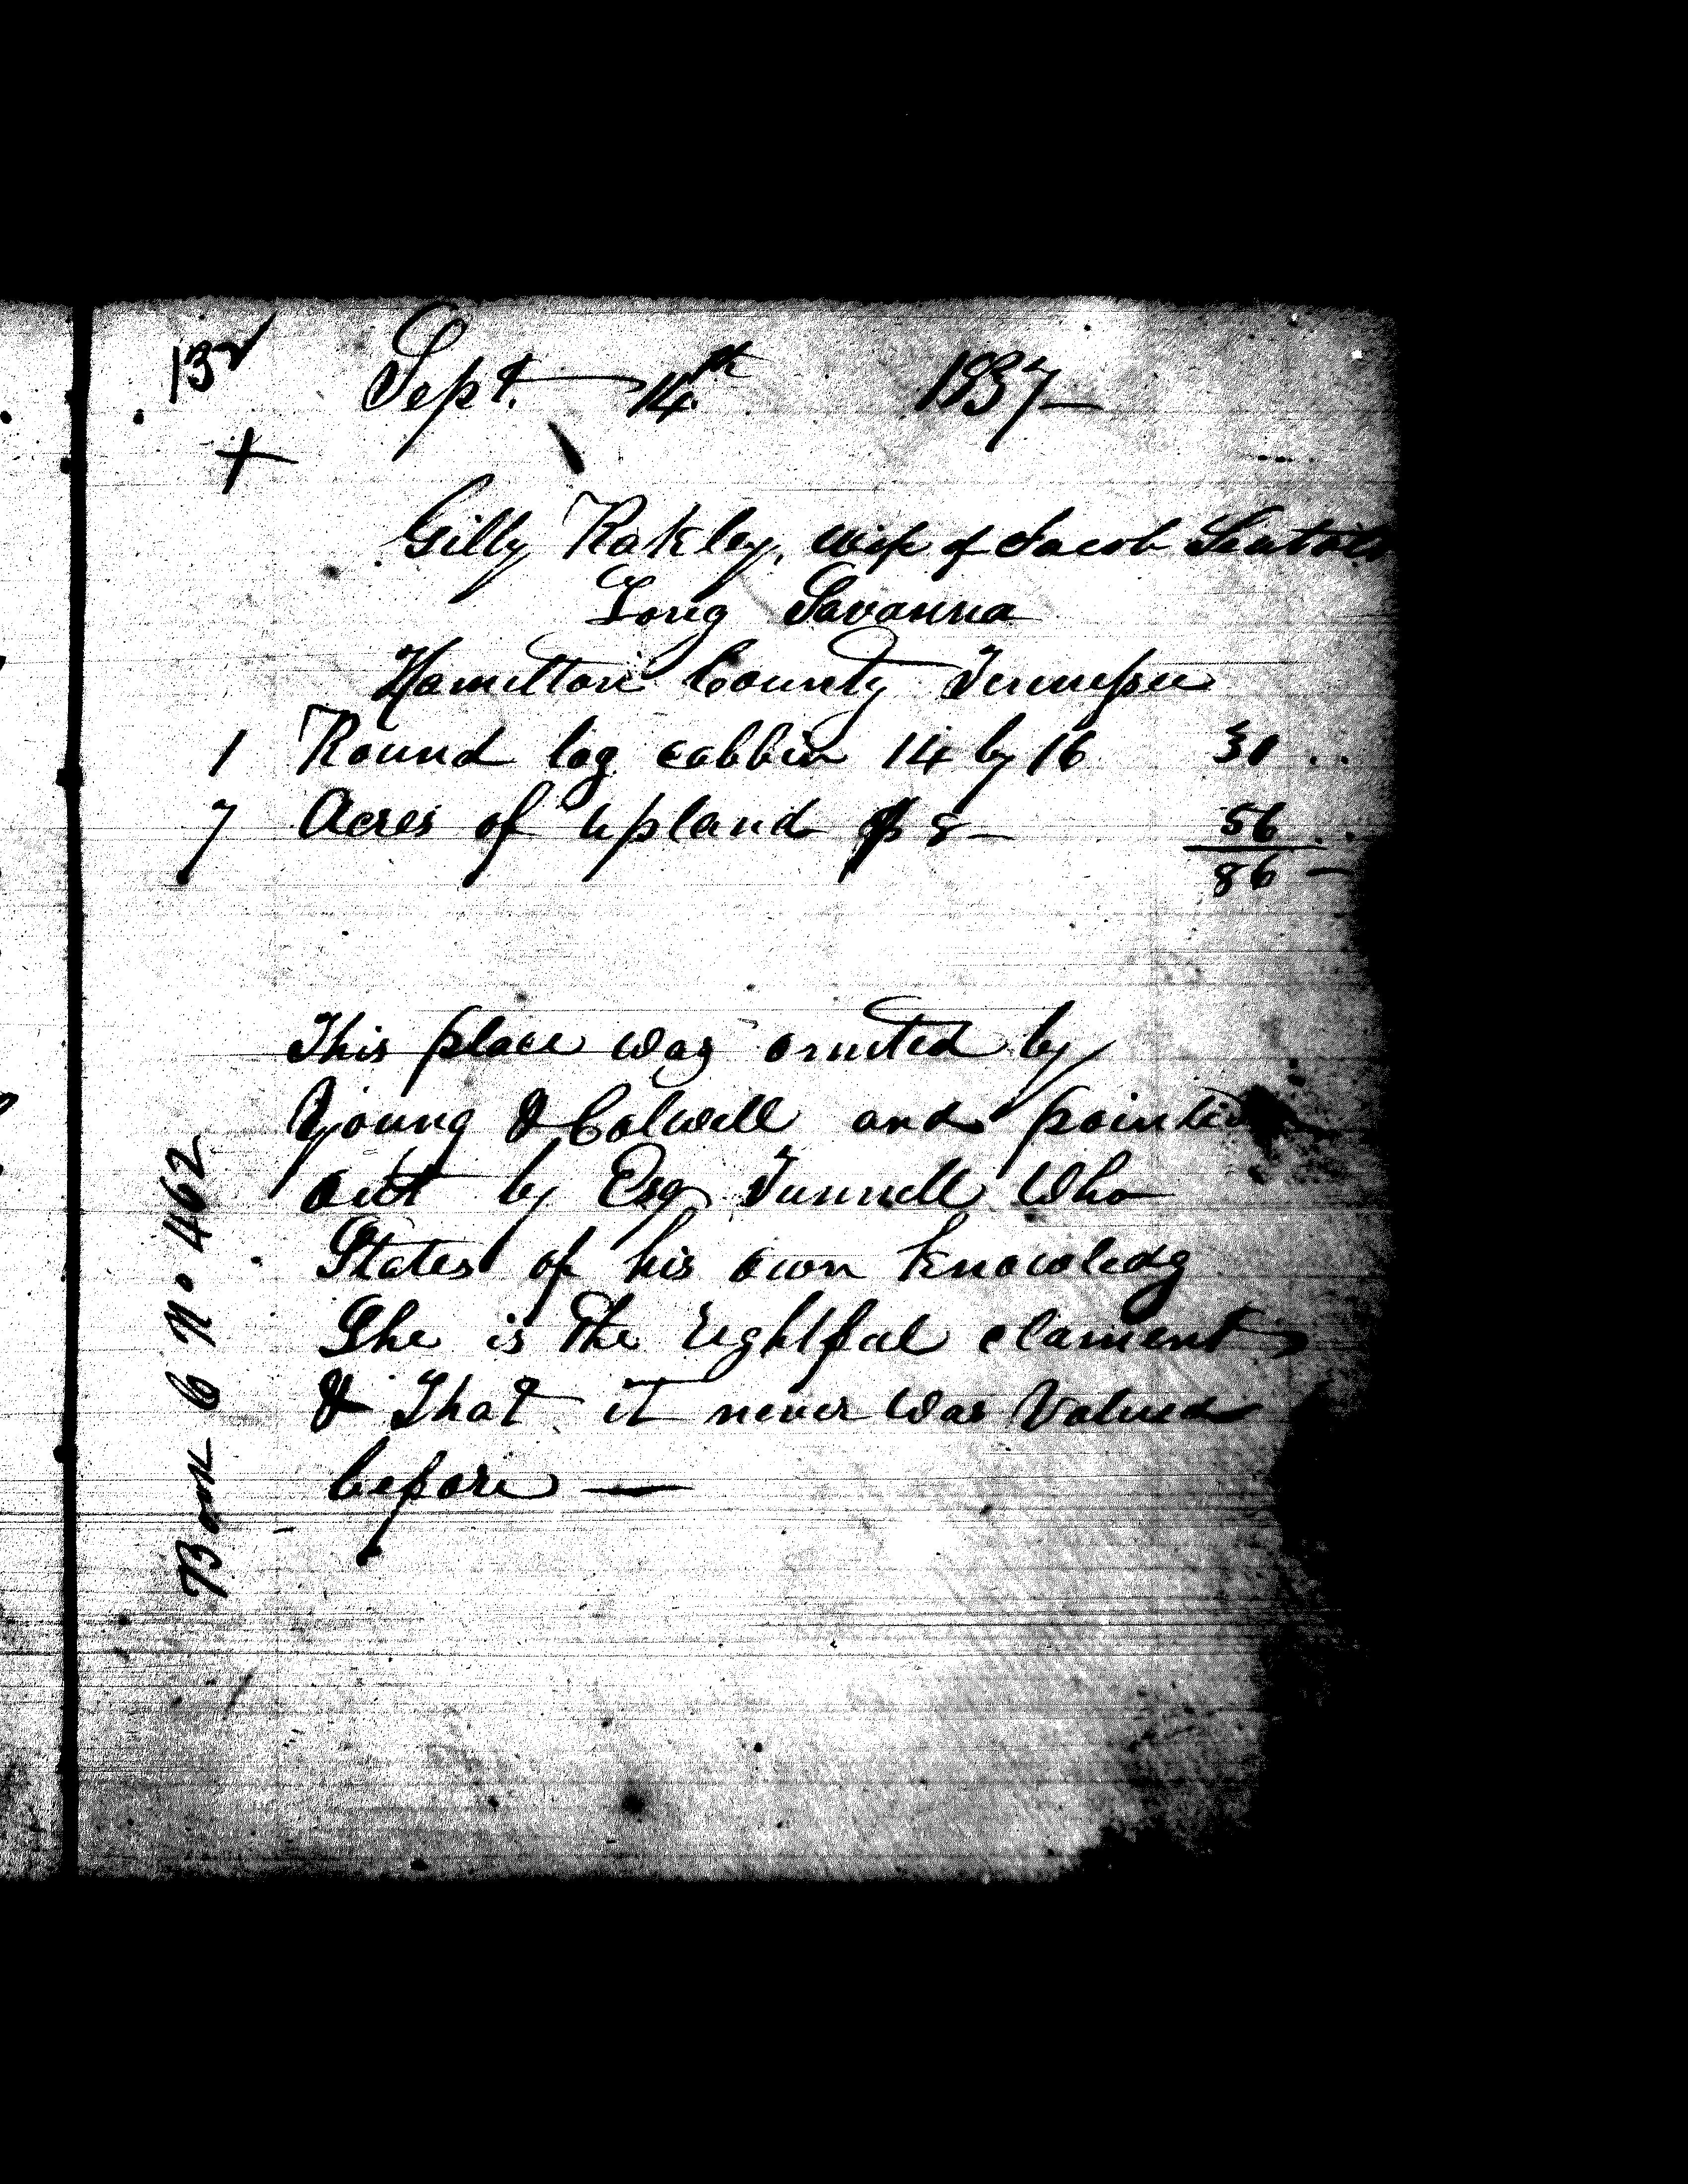 132
Sept. 14th 1837
+
Gilly Rakley, wife of Jacob
Long Savanna
Hamilton County Tennessee
1 Round log cabbin 14 by 16 30 ..
7 Acres of upland $8 — 56 ..
86 —
This place was omited by
Young & Colwell and
out by Esq Tunnell Who
States of his own knowledg
She is the rightful clament
& That it never was Valued
before —
Book C No 462